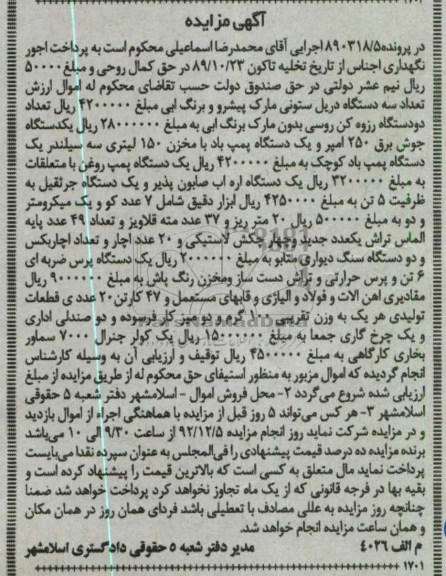 آگهی مزایده
در پرونده۸۹۰۳۱۸/۵اجرایی آقای محمدرضا اسماعیلی محکوم است به پرداخت اجور
نگهداری اجناس از تاریخ تخلیه تاکون ۸۹/۱۰/۲۳ در حق کمال روحی و مبلغ ۵۰۰۰۰
ریال نیم عشر دولتی در حق صندوق دولت حسب تقاضای محکوم له اموال ارزش
تعداد سه دستگاه دریل ستونی مارک پیشرو و برنگ ابی مبلغ ۴۲۰۰۰۰۰ ریال تعداد
دودستگاه رزوه کن روسی بدون مارک برنگ ابی به مبلغ ۲۸۰۰۰۰۰۰ ریال یکدستگاه
جوش برق ۲۵۰ امپر و یک دستگاه پمپ باد با مخزن ۱۵۰ لیتری سه سیلندر یک
دستگاه پمپ باد کوچک به مبلغ ۴۲۰۰۰۰۰ ریال یک دستگاه پمپ روغن با متعلقات
به مبلغ ۳۲۰۰۰۰۰ ریال یک دستگاه اره اب صابون پذیر و یک دستگاه جرثقیل به
ظرفیت ۵ تن به مبلغ ۴۲۵۰۰۰۰ ریال ابزار دقیق شامل ۷ عدد کو و یک میکرومتر
و دو به مبلغ ۵۰۰۰۰۰ ریال ۲۰ متر ریز و ۳۷ عدد مته قلاویز و تعداد ۴۹ عدد پایه
الماس تراش یکعدد جدید وچهار چکش لاستیکی و ۲۰ عدد اچار و تعداد اچاربکس
و دو دستگاه سنگ دیواری متابو به مبلغ ۲۰۰۰۰۰۰ ریال یک دستگاه پرس ضربه ای
۶ تن و پرس حرارتی و تراش دست ساز ومخزن رنگ پاش به مبلغ ۹۰۰۰۰۰۰ ریال
مقادیری اهن الات و فولاد و الیاژی و قابهای مستعمل و ۴۷ کارتن۲۰ عدد ی قطعات
تولیدی هر یک به وزن تقریبی ۱۰۰ گرم و دو میز کار فرسوده و دو صندلی اداری
و یک چرخ گاری جمعا به مبلغ ۱۵۰۰۰۰۰۰ ریال یک کولر جنرال ۷۰۰۰ سماور
بخاری کارگاهی به مبلغ ۴۵۰۰۰۰۰ ریال توقیف و ارزیابی آن به وسیله کارشناس
انجام گردیده که اموال مزبور به منظور استیفای حق محکوم له از طریق مزایده از مبلغ
ارزیابی شده شروع می‌گردد ۲- محل فروش اموال – اسلامشهر دفتر شعبه ۵ حقوقی
اسلامشهر ۳- هر کس می‌تواند ۵ روز قبل از مزایده با هماهنگی اجراء از اموال بازدید
و در مزایده شرکت نماید روز انجام مزایده ۹۲/۱۲/۵ از ساعت ۹/۳۰ الی ۱۰ می‌باشد
برنده مزایده ده درصد قیمت پیشنهادی را فی‌المجلس به عنوان سپرده نقدا می‌بایست
پرداخت نماید مال متعلق به کسی است که بالاترین قیمت را پیشنهاد کرده است و
بقیه بها در فرجه قانونی که از یک ماه تجاوز نخواهد کرد پرداخت خواهد شد ضمنا
چنانچه روز مزایده به عللی مصادف با تعطیلی باشد فردای همان روز در همان مکان
و همان ساعت مزایده انجام خواهد شد.
م الف ۴۰۲۶ مدیر دفتر شعبه ۵ حقوقی دادگستری اسلامشهر
۱۷۰۱